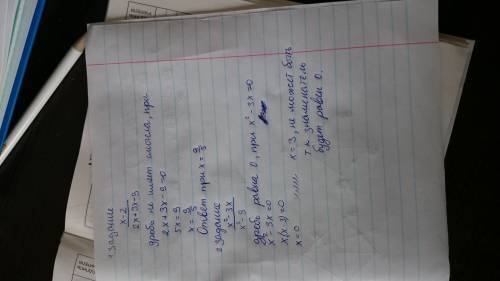 1 задание
x-2
2x+3x-9
дробь не имеет смысла, при
2x+3x-9=0
5x=9
x=9/5
Ответ при x=9/5
2 задание
x²-3x
x²-9
дробь равна 0, при x²-3x=0
x²-3x=0
x(x-3)=0
x=0 или x=3, не может быть
т.к знаменатель
будет равен 0.